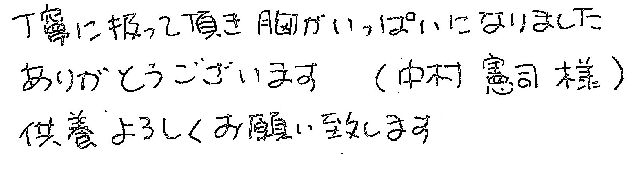 丁寧に扱って頂き胸がいっぱいになりました
ありがとうございます　(中村 憲司 様)
供養よろしくお願い致します